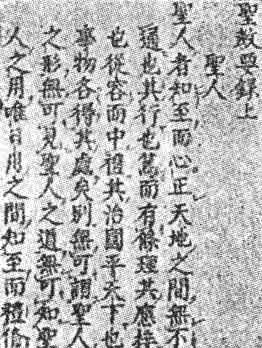 聖教要錄上
聖人
聖人者知至而心正天地之間無不
通也其行也篤而有條理其應接
也從容而中禮其治國平天下也
事物各得其處矣別無可謂聖人
之形無可見聖人之道無可知聖
人之用唯日用之間知至而禮備